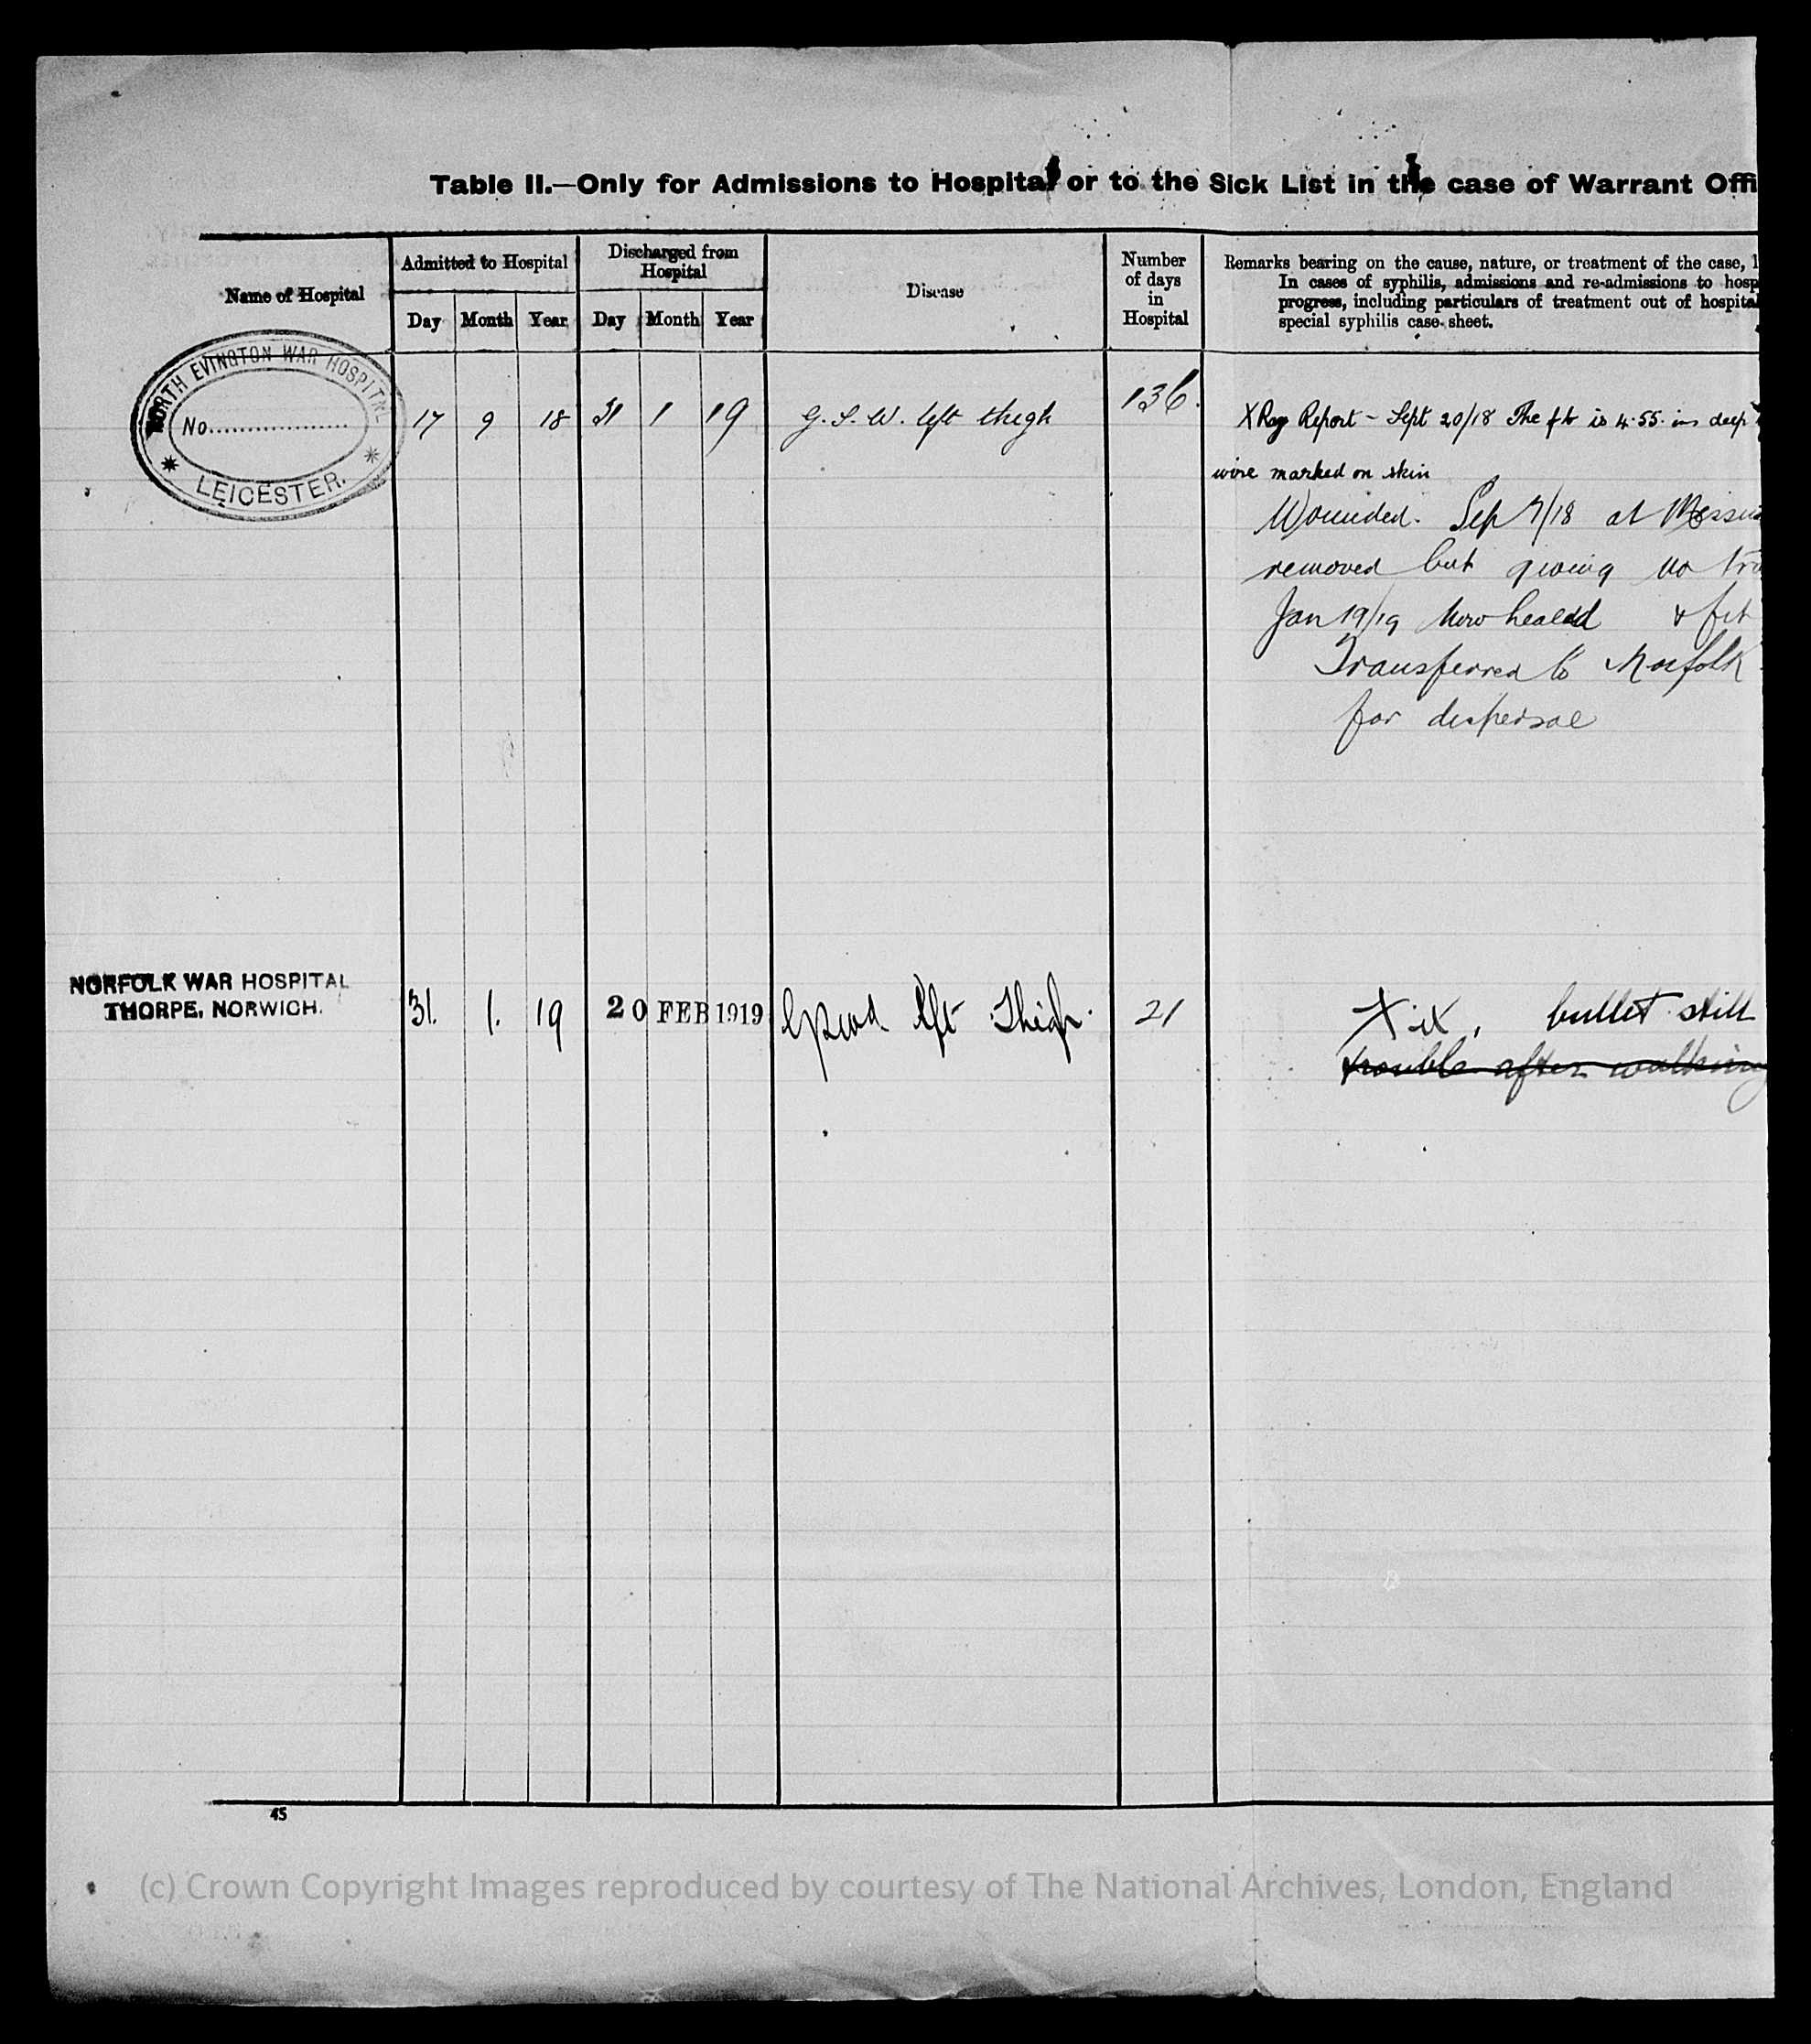 Table II.—Only for Admissions to Hospital or to the Sick List in the case of Warrant Offi
Name of Hospital
Admitted to Hospital
Discharged from
Hospital
Disease
Number
of days
in
Hospital
Remarks bearing on the cause, nature, or treatment of the case,
In cases of syphilis, admissions and re-admissions to hosp
progress, including particulars of treatment out of hospital
special syphilis case-sheet.
Day Month Year Day Month Year
NORTH EVINGTON WAR HOSPITAL
No.
LEICESTER.
17 9 18 31 1 19 G.S.W. left thigh 136.
X Ray Report - Sept 20/18 The fb is 4.55. ins deep
wire marked on skin
Wounded. Sep 7/18 at
removed but giving no
Jan 19/19 Now healed & fit
Transferred to Norfolk
for dispersal
NORFOLK WAR HOSPITAL
THORPE, NORWICH.
31. 1. 19 20 FEB 1919 left Thigh. 21
bullet still
trouble after walking
45
(c) Crown Copyright Images reproduced by courtesy of The National Archives, London, England